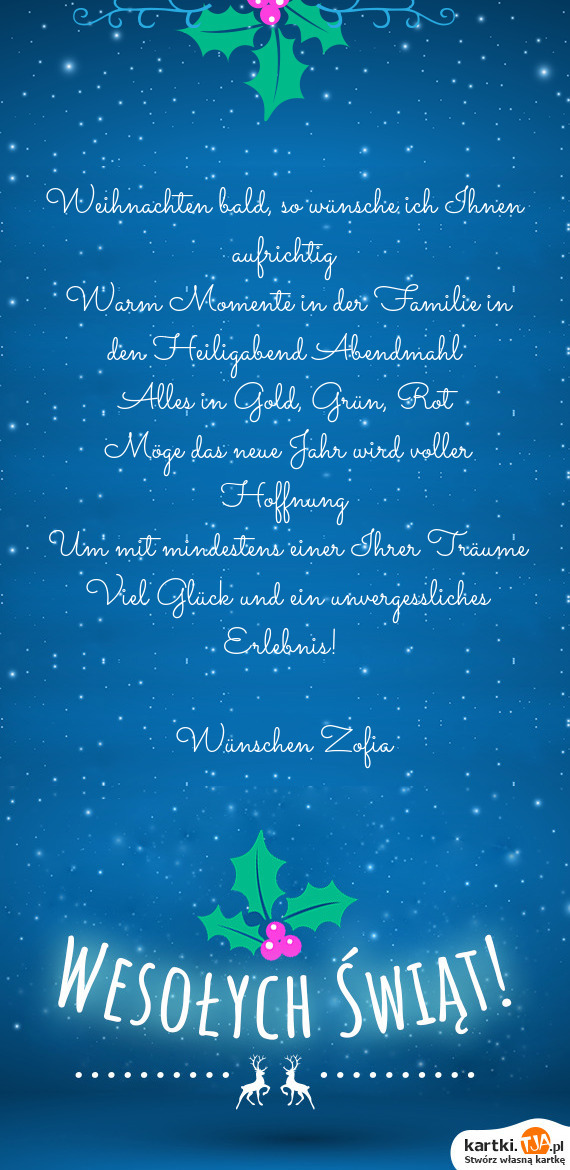 Weihnachten bald, so wünsche ich Ihnen
aufrichtig
Warm Momente in der Familie in
den Heiligabend Abendmahl
Alles in Gold, Grün, Rot
Möge das neue Jahr wird voller
Hoffnung
Um mit mindestens einer Ihrer Träume
Viel Glück und ein unvergessliches
Erlebnis!
Wünschen Zofia
Wesołych Świąt!
kartki.TJA.pl
Stwórz własną kartkę